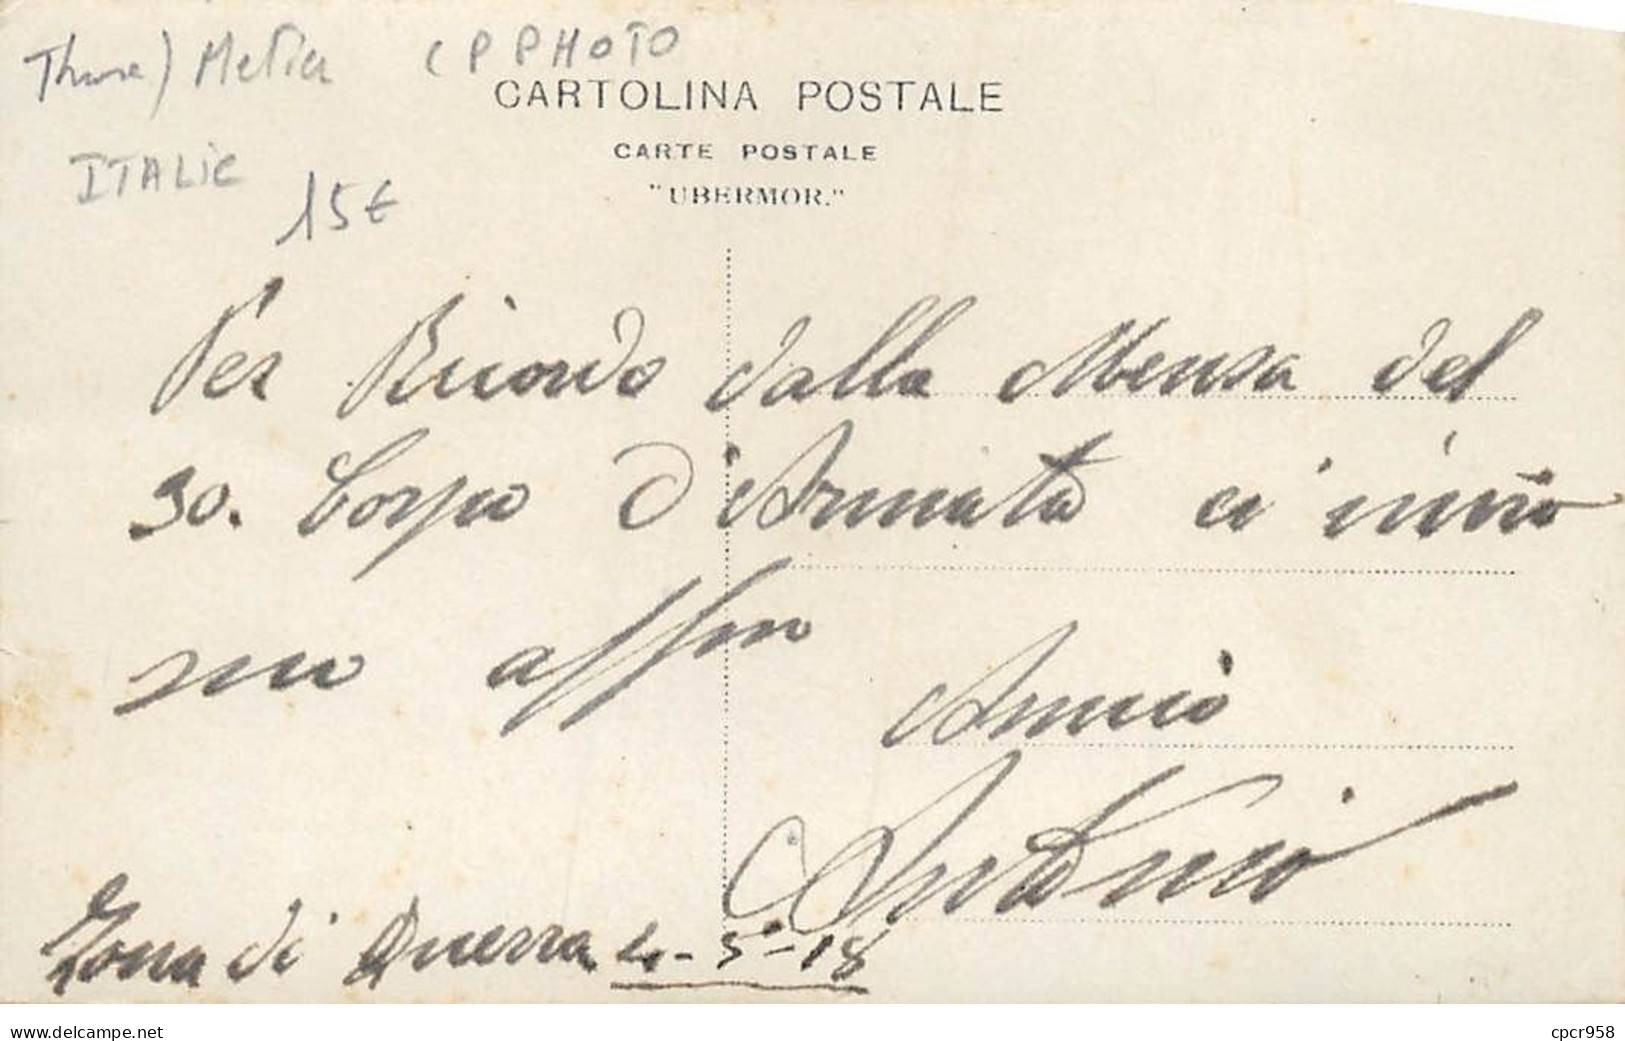 Thème) Metier CP PHOTO
CARTOLINA POSTALE
CARTE POSTALE
ITALIE
"UBERMOR."
15€
Per Ricordo dalla Mensa del
30. Corpo d'Armata ci
affmo
Amico
Antonio
Zona di Guerra 4-5-18
www.delcampe.net
cpcr958